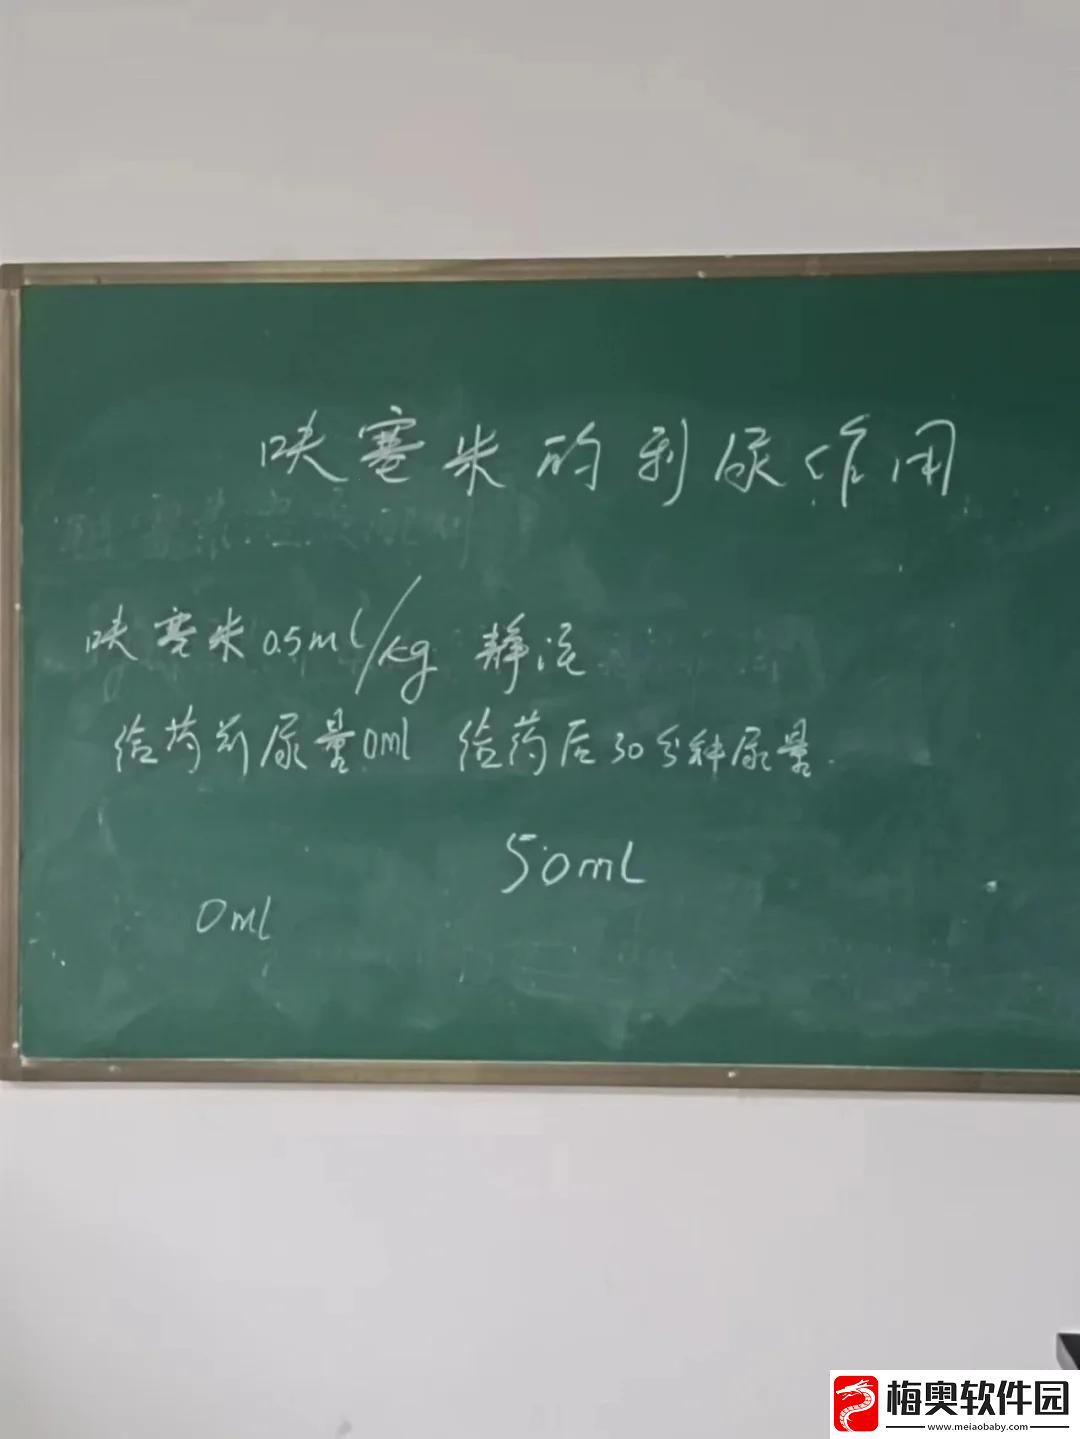 呋塞米的利尿作用
呋塞米0.5ml/kg 静注
给药前尿量0ml 给药后30分种尿量.
50ml
0ml
梅奥软件园
www.meiaobaby.com